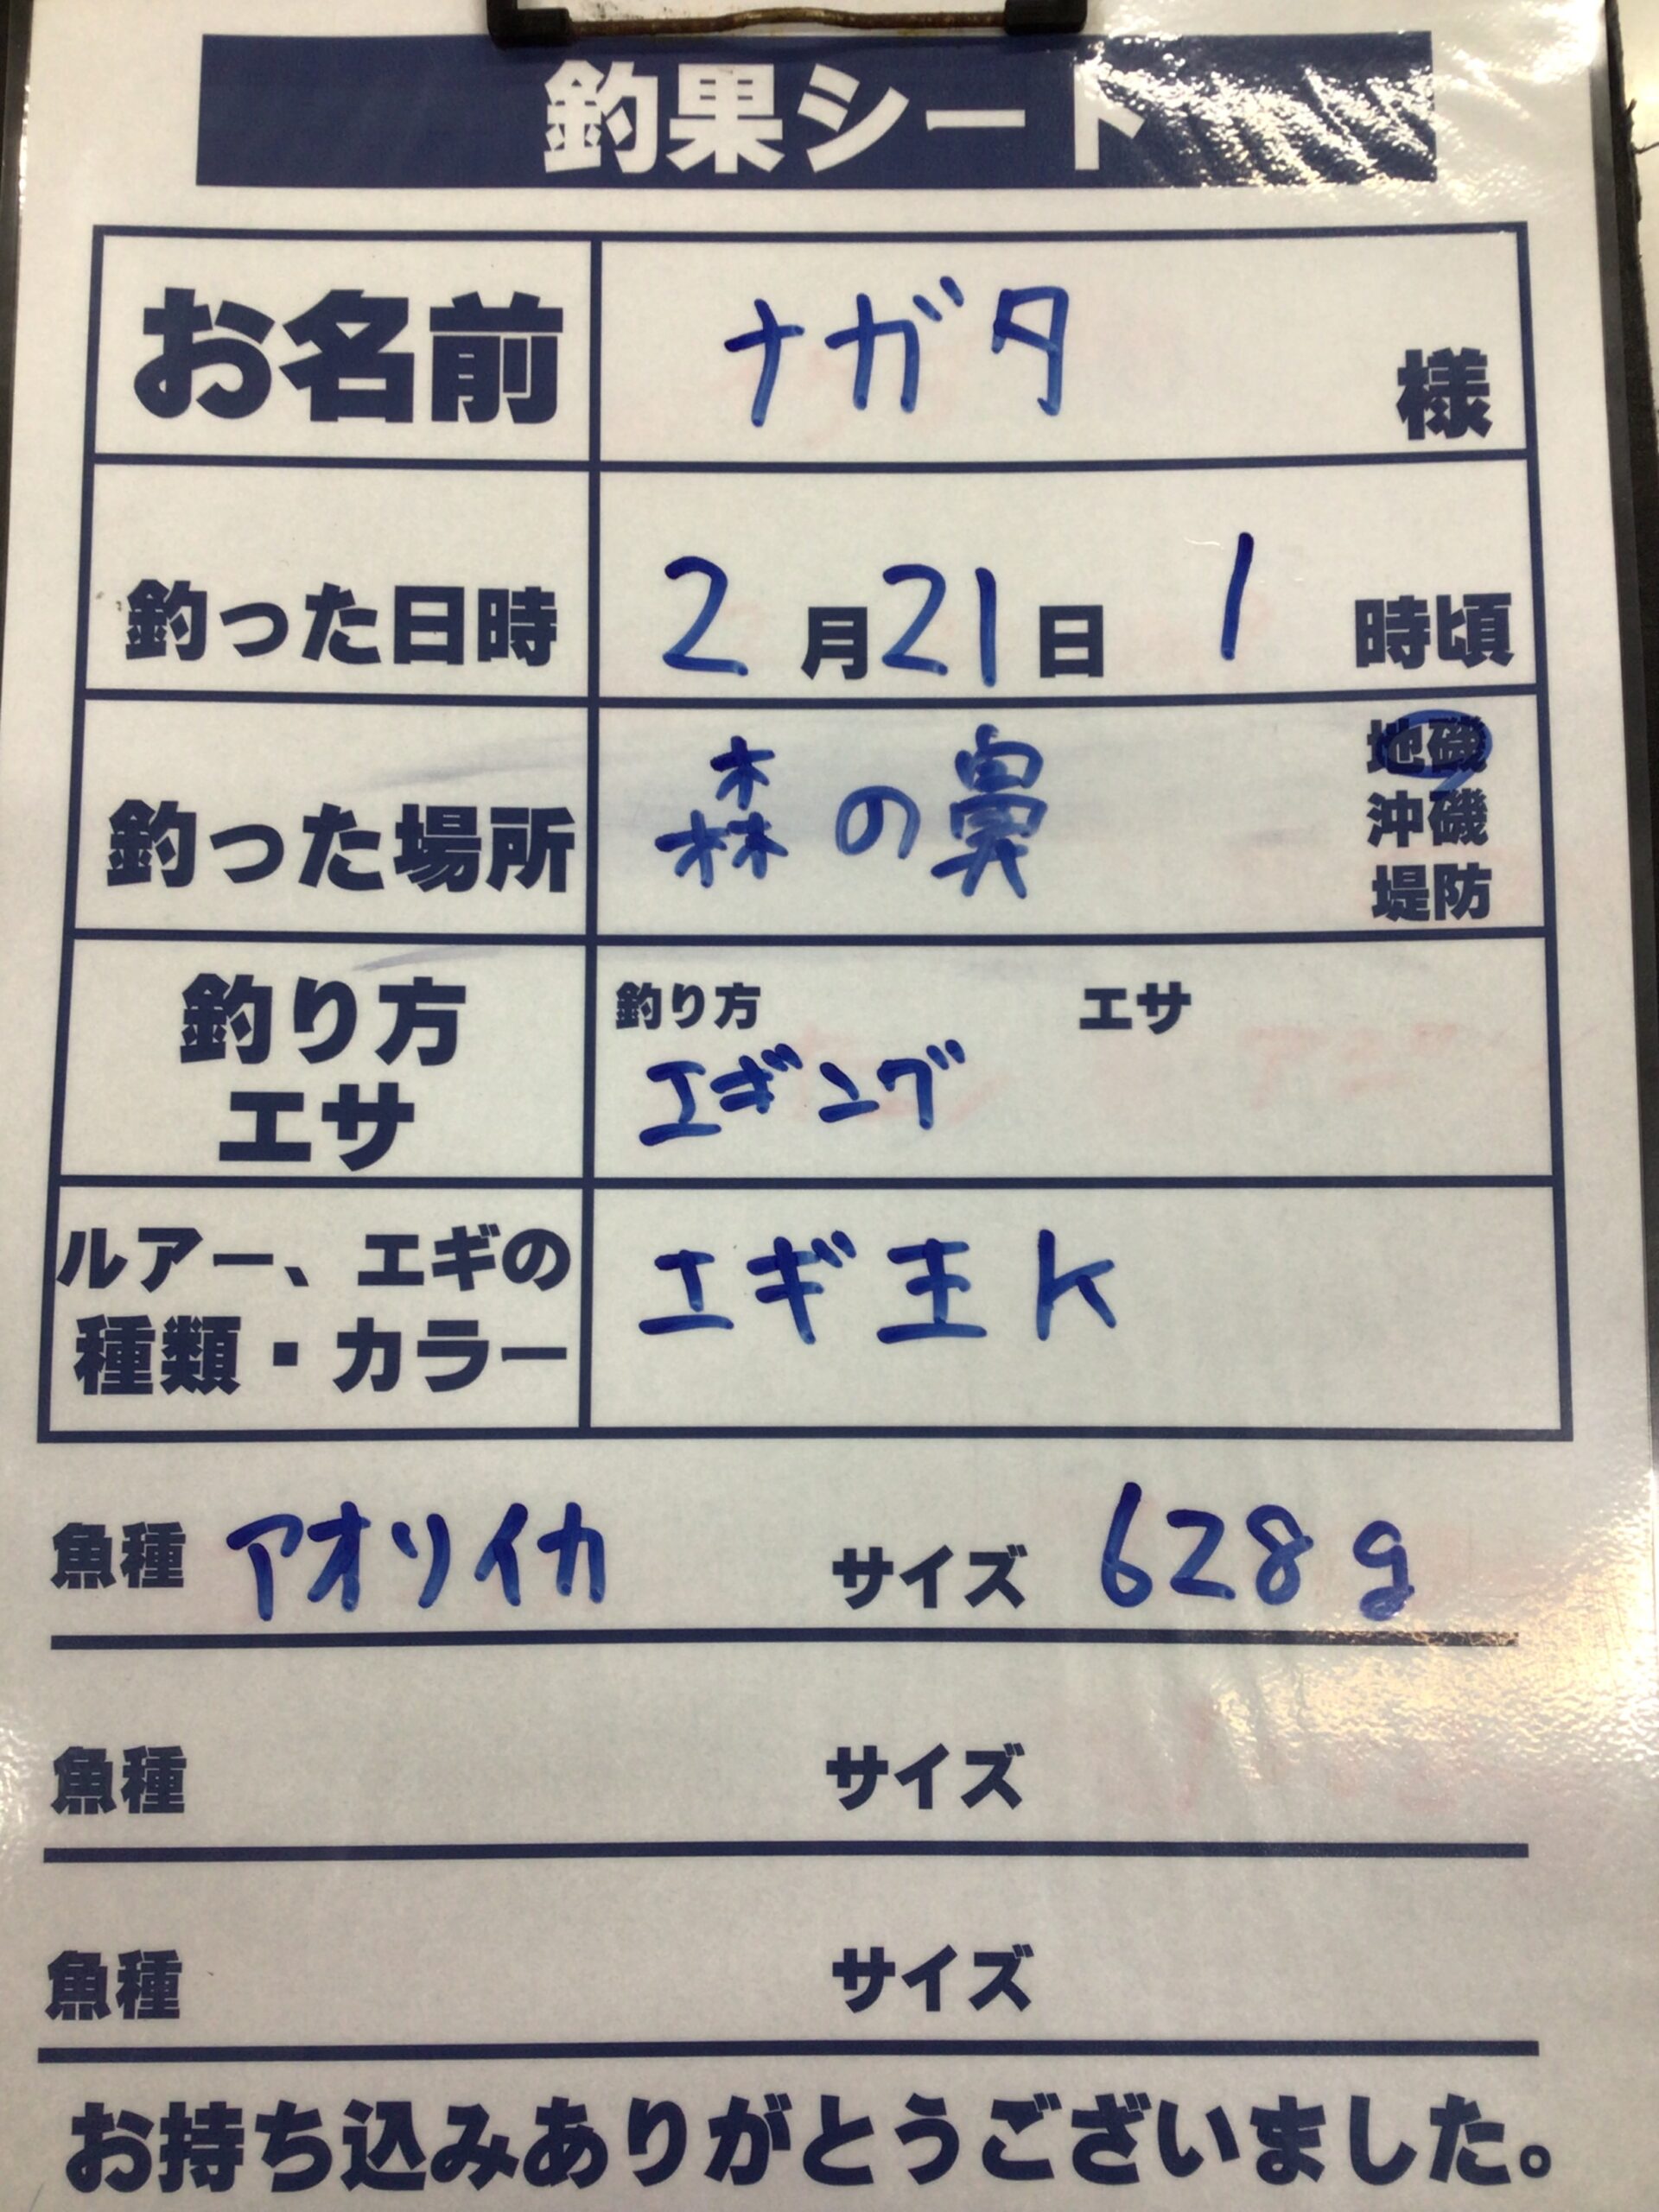 釣果シート
お名前 ナガタ 様
釣った日時 2月21日 1時頃
釣った場所 森の鼻 地磯
沖磯
堤防
釣り方 エサ
釣り方 エサ
エギング
ルアー、エギの
種類・カラー
エギ王K
魚種 アオリイカ サイズ 628g
魚種 サイズ
魚種 サイズ
お持ち込みありがとうございました。